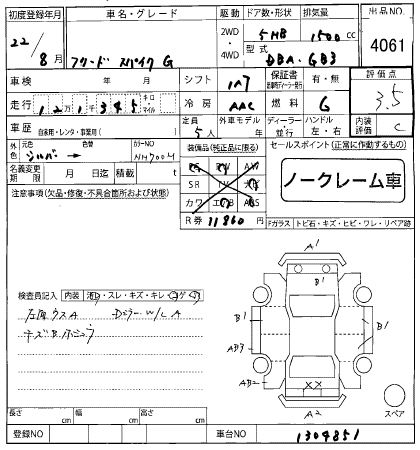 初度登録年月 車名・グレード 駆動 ドア数・形状 排気量 出品NO.
22/8月 フリード スパイク G 2WD・4WD 5HB 1500cc 4061
型式 DBA-GB3
車検 年 月 シフト IA7 保証書 有・無 評価点 3.5
走行 12万1千345 キロ・マイル 冷房 AAC 燃料 G
車歴 自家用・レンタ・事業用( ) 定員 5人 外車モデル 年 ディーラー・並行 ハンドル 左・右 内装評価 C
外色 元色 シルバー 色替 カラーNO NH700M 装備品(純正品に限る) セールスポイント(正常に作動するもの)
名義変更期限 月 日迄 積載 t PS PW AW
注意事項(欠品・修復・不具合箇所および状態) SR TV ノークレーム車
カワ エアB ABS
R券 11860円 Fガラス トビ石・キズ・ヒビ・ワレ・リペア跡
A1
B1
検査員記入 内装 汚・スレ・キズ・キレ・コゲ
B1 B1
AB3
キズ
AB2 XX
スペア
A2
長さ cm 幅 cm 高さ cm
登録NO 車台NO 1304851